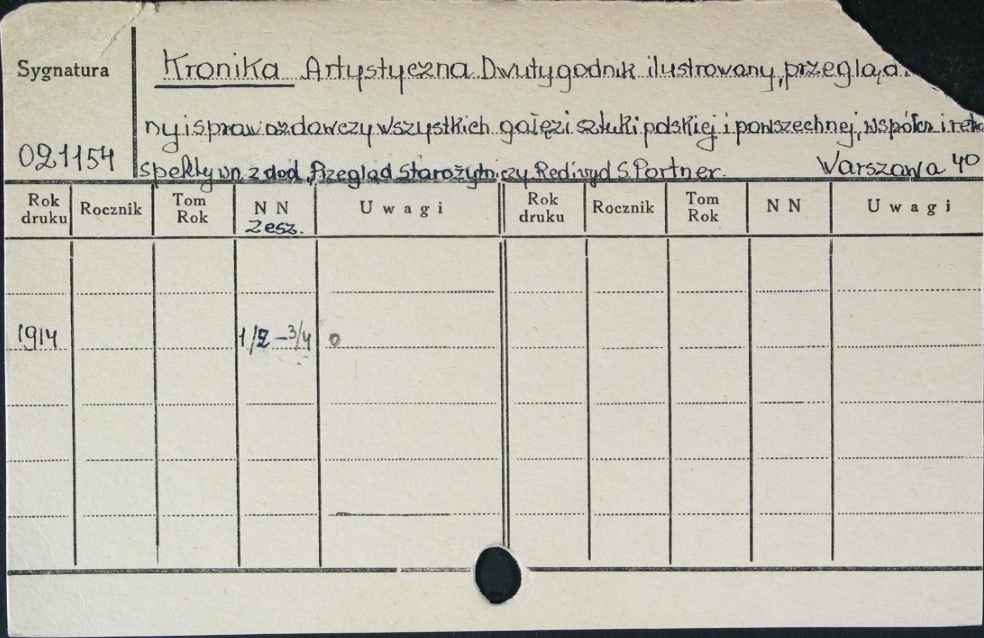 Sygnatura
021154
Kronika Artystyczna Dwutygodnik ilustrowany, przegląd
ny i sprawozdawczy wszystkich gałęzi sztuki polskiej i powszechnej, współcz i retro
spektywn. z dod. Przegląd Starożytniczy Red i wyd S. Portner. Warszawa 4⁰
Rok druku Rocznik Tom Rok N N Zesz. Uwagi Rok druku Rocznik Tom Rok N N Uwagi
1914 1/2 – 3/4 0